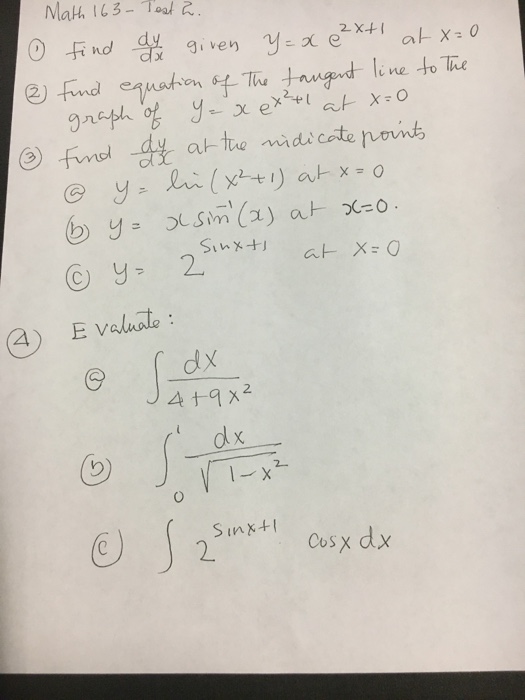 Math 163 - Test 2.
① find dy/dx given y = x e^{2x+1} at x = 0
② find equation of The tangent line to The
graph of y = x e^{x²+1} at x = 0
③ find dy/dx at the indicate points
ⓐ y = ln (x²+1) at x = 0
ⓑ y = x sin⁻¹(x) at x = 0.
ⓒ y = 2^{sinx+1} at x = 0
④ Evaluate :
ⓐ ∫ dx / (4+9x²)
ⓑ ∫₀¹ dx / √(1-x²)
ⓒ ∫ 2^{sinx+1} cosx dx